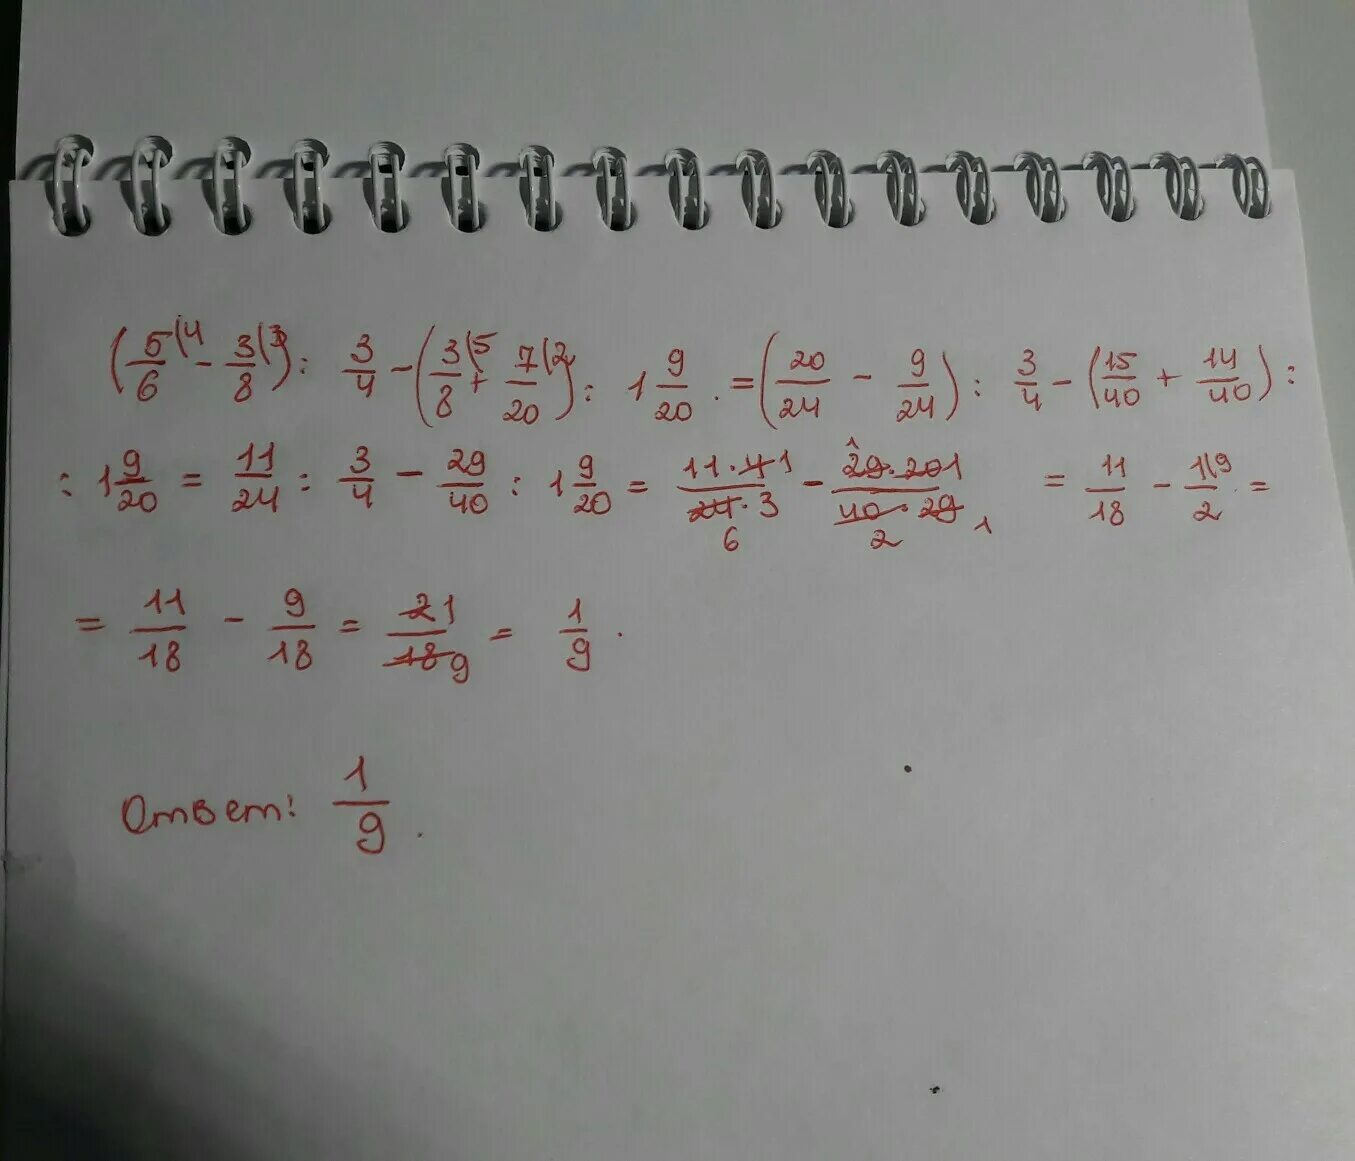 (5/6(4 - 3/8(3) : 3/4 - (3/8(5 + 7/20(2) : 1 9/20 . = (20/24 - 9/24) : 3/4 - (15/40 + 14/40) :
: 1 9/20 = 11/24 : 3/4 - 29/40 : 1 9/20 = 11·4 1/24·3 6 - 1 29·20 1/40·29 2 1 = 11/18 - 1(9/2 . =
= 11/18 - 9/18 = 2 1/18 9 = 1/9 .
Ответ: 1/9 .